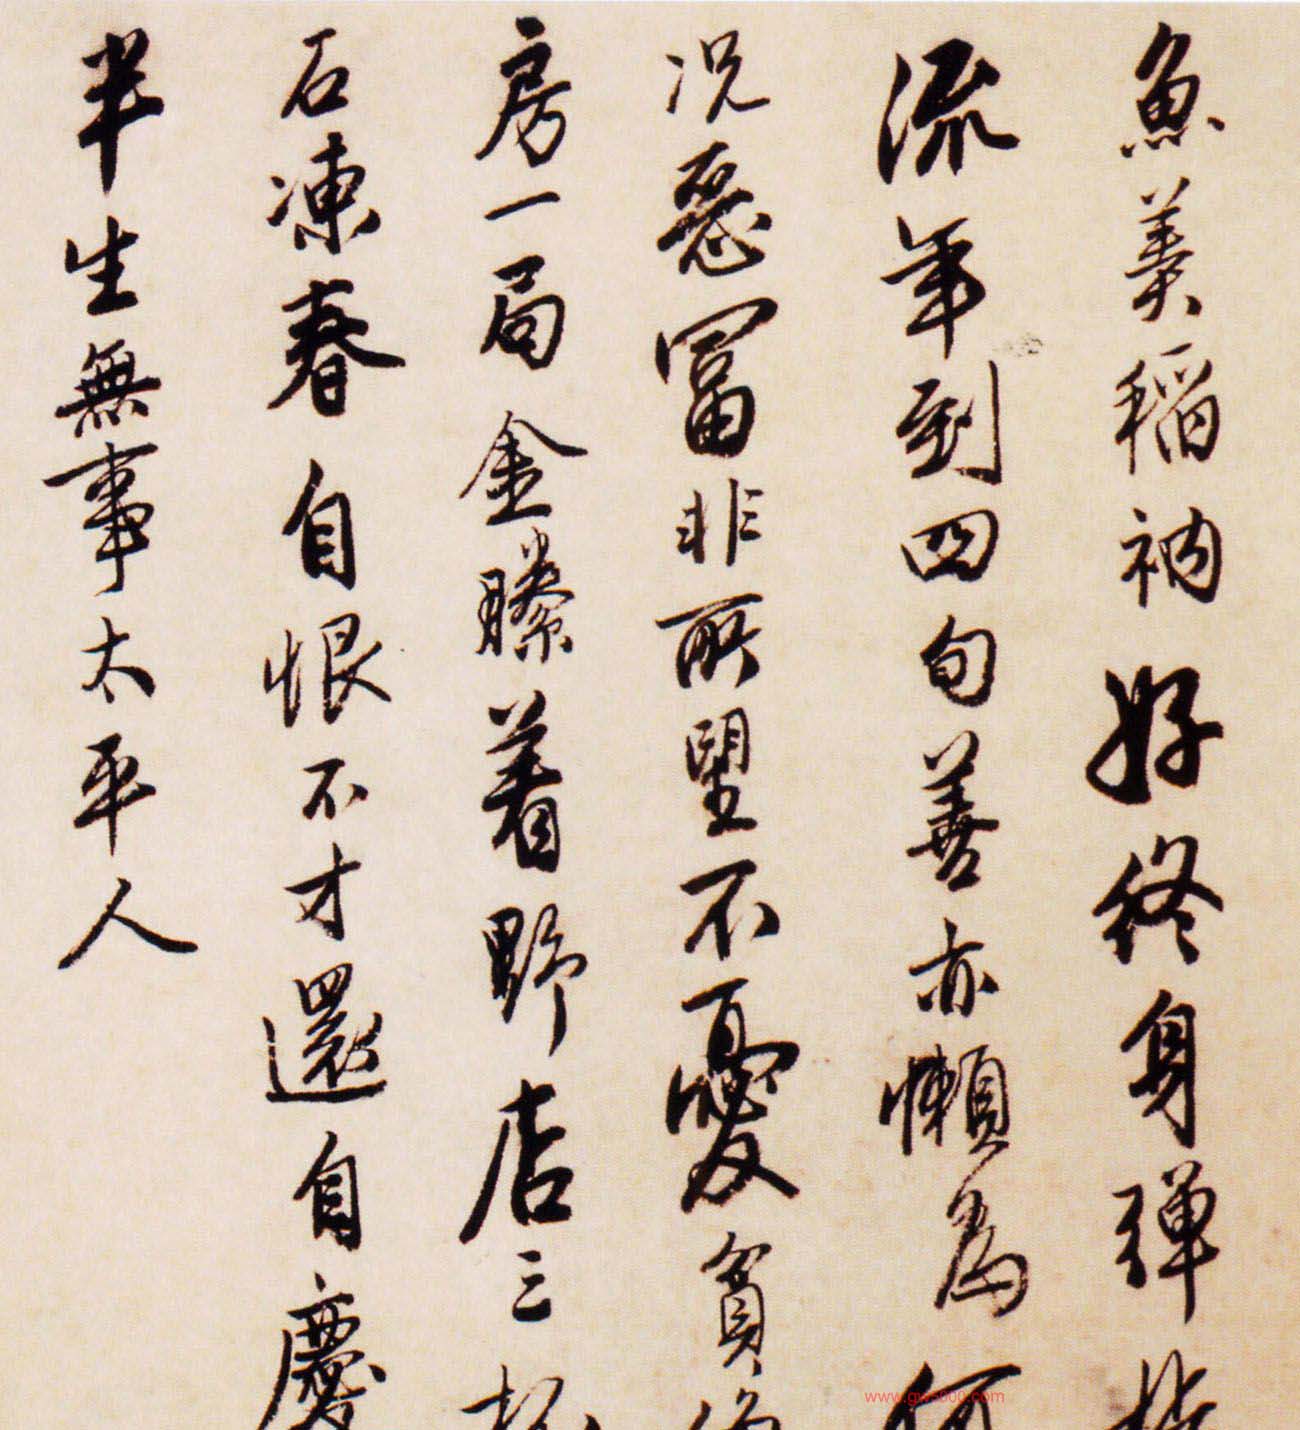 魚羹稻衲好終身彈指
流年到四旬善亦懶為何
況惡富非所望不憂貧
房一局金縢着野店三杯
石凍春自恨不才還自慶
半生無事太平人